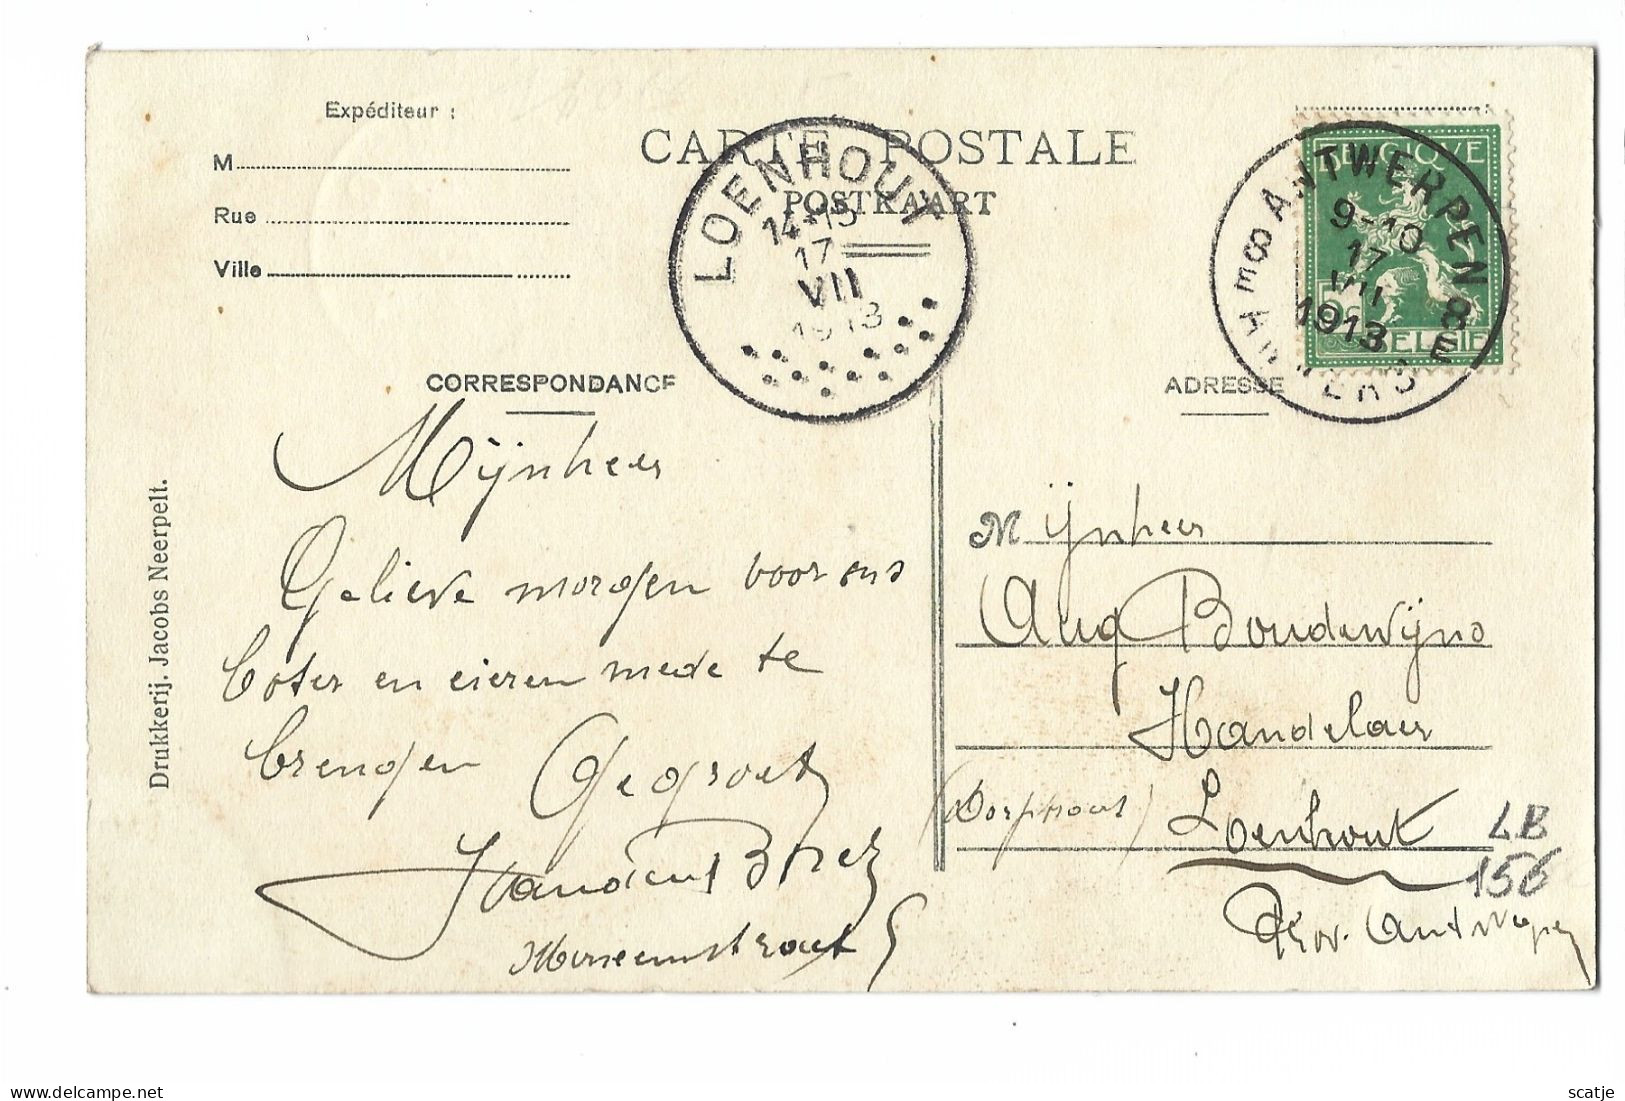 Expéditeur :
M
Rue
Ville
CARTE POSTALE
POSTKAART
LOENHOUT
14-15
17
VII
1913
BELGIQUE
5c
BELGIE
ANTWERPEN 8 E
9-10
17
VII
1913
ANVERS 8 E
CORRESPONDANCE
ADRESSE
Drukkerij. Jacobs Neerpelt.
Mijnheer
Gelieve morgen voor ons
boter en eieren mede te
brengen Gegroet
Mijnheer
Aug Boudewijns
Handelaer
(Dorphout) Loenhout
Prov. Antwerpen
LB
156
scatje